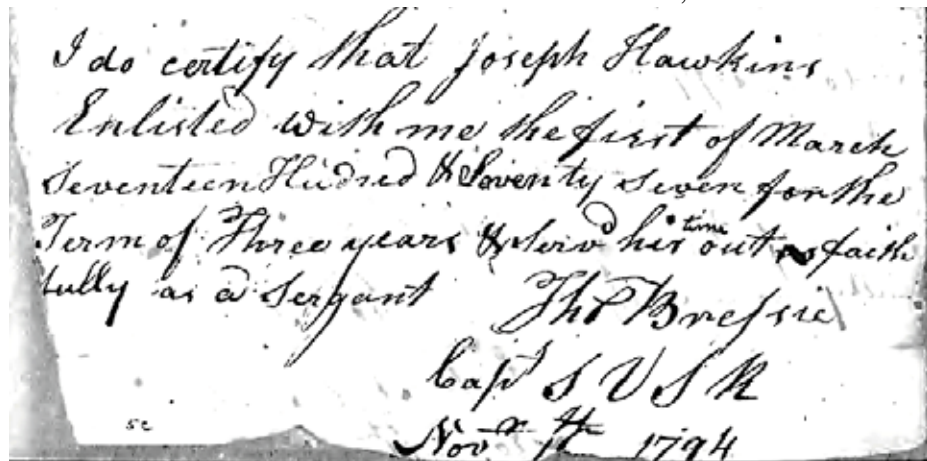 I do certify that Joseph Hawkins
Enlisted with me the first of March
Seventeen Hudred & Soventy seven for the
Term of Three years & serv'd his time out faith
fully as a Sergant
Tho.s Bressie
Capt S V S R
Novr 1794
sc